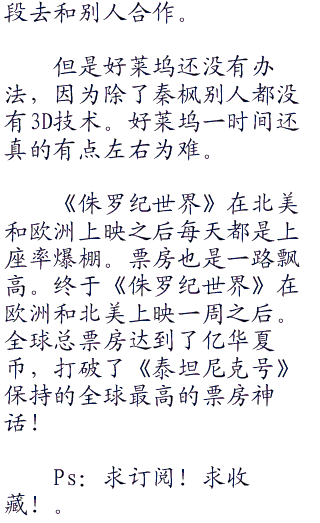 段去和别人合作。
但是好莱坞还没有办
法，因为除了秦枫别人都没
有3D技术。好莱坞一时间还
真的有点左右为难。
《侏罗纪世界》在北美
和欧洲上映之后每天都是上
座率爆棚。票房也是一路飘
高。终于《侏罗纪世界》在
欧洲和北美上映一周之后。
全球总票房达到了亿华夏
币，打破了《泰坦尼克号》
保持的全球最高的票房神
话！
Ps：求订阅！求收
藏！。